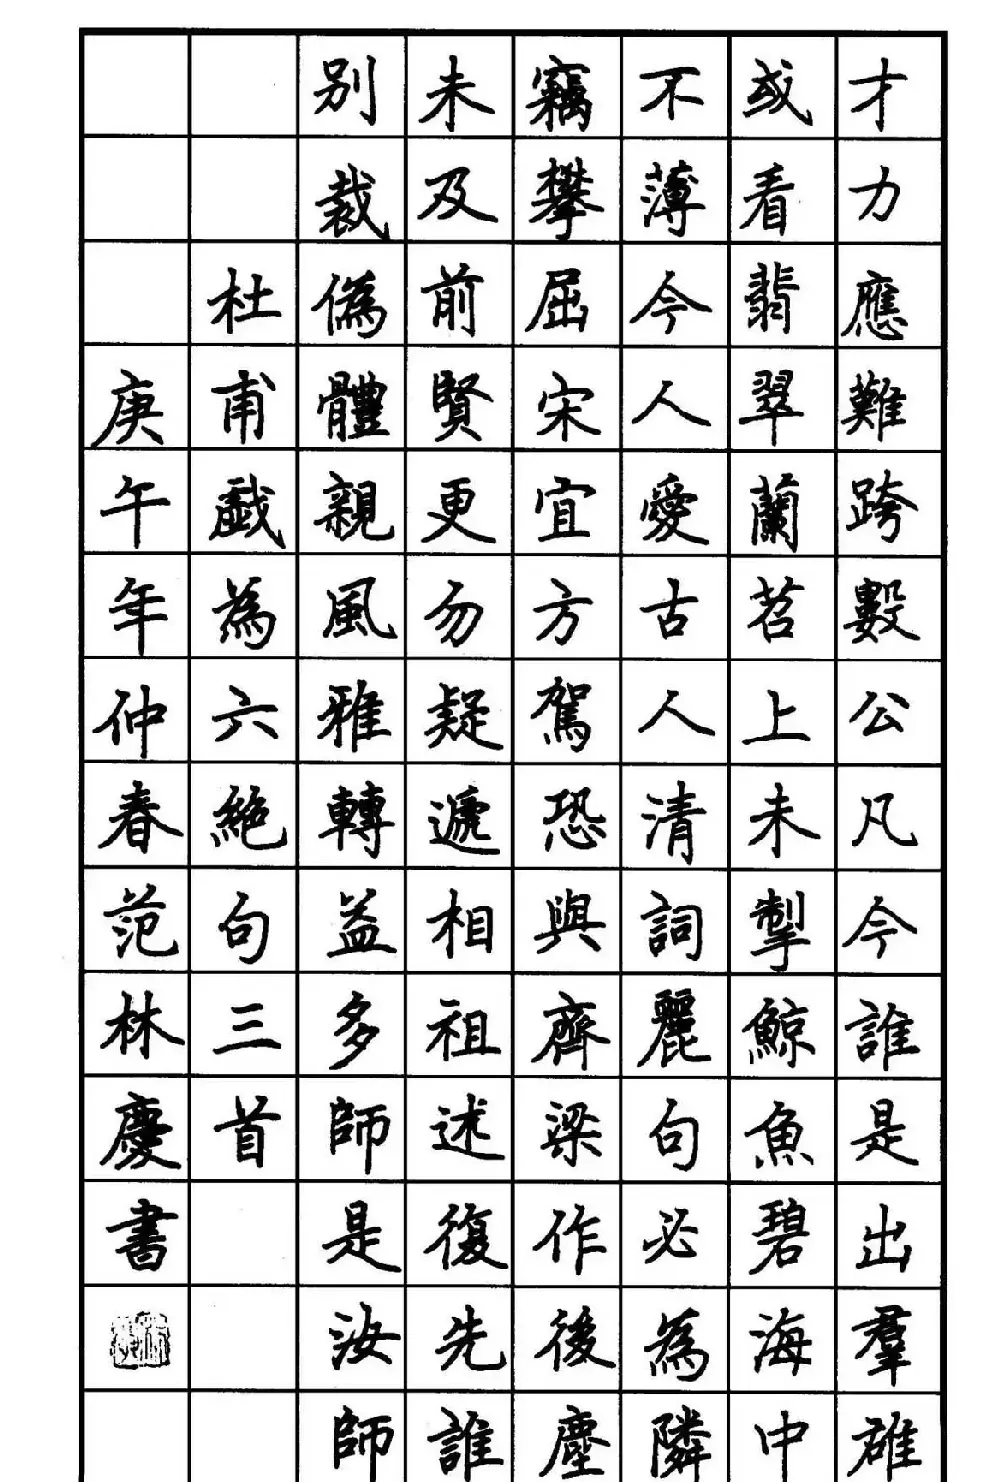 才力應難跨數公凡今誰是出羣雄
或看翡翠蘭苕上未掣鯨魚碧海中
不薄今人愛古人清詞麗句必為隣
竊攀屈宋宜方駕恐與齊梁作後塵
未及前賢更勿疑遞相祖述復先誰
別裁偽體親風雅轉益多師是汝師
杜甫戲為六絶句三首
庚午年仲春范林慶書